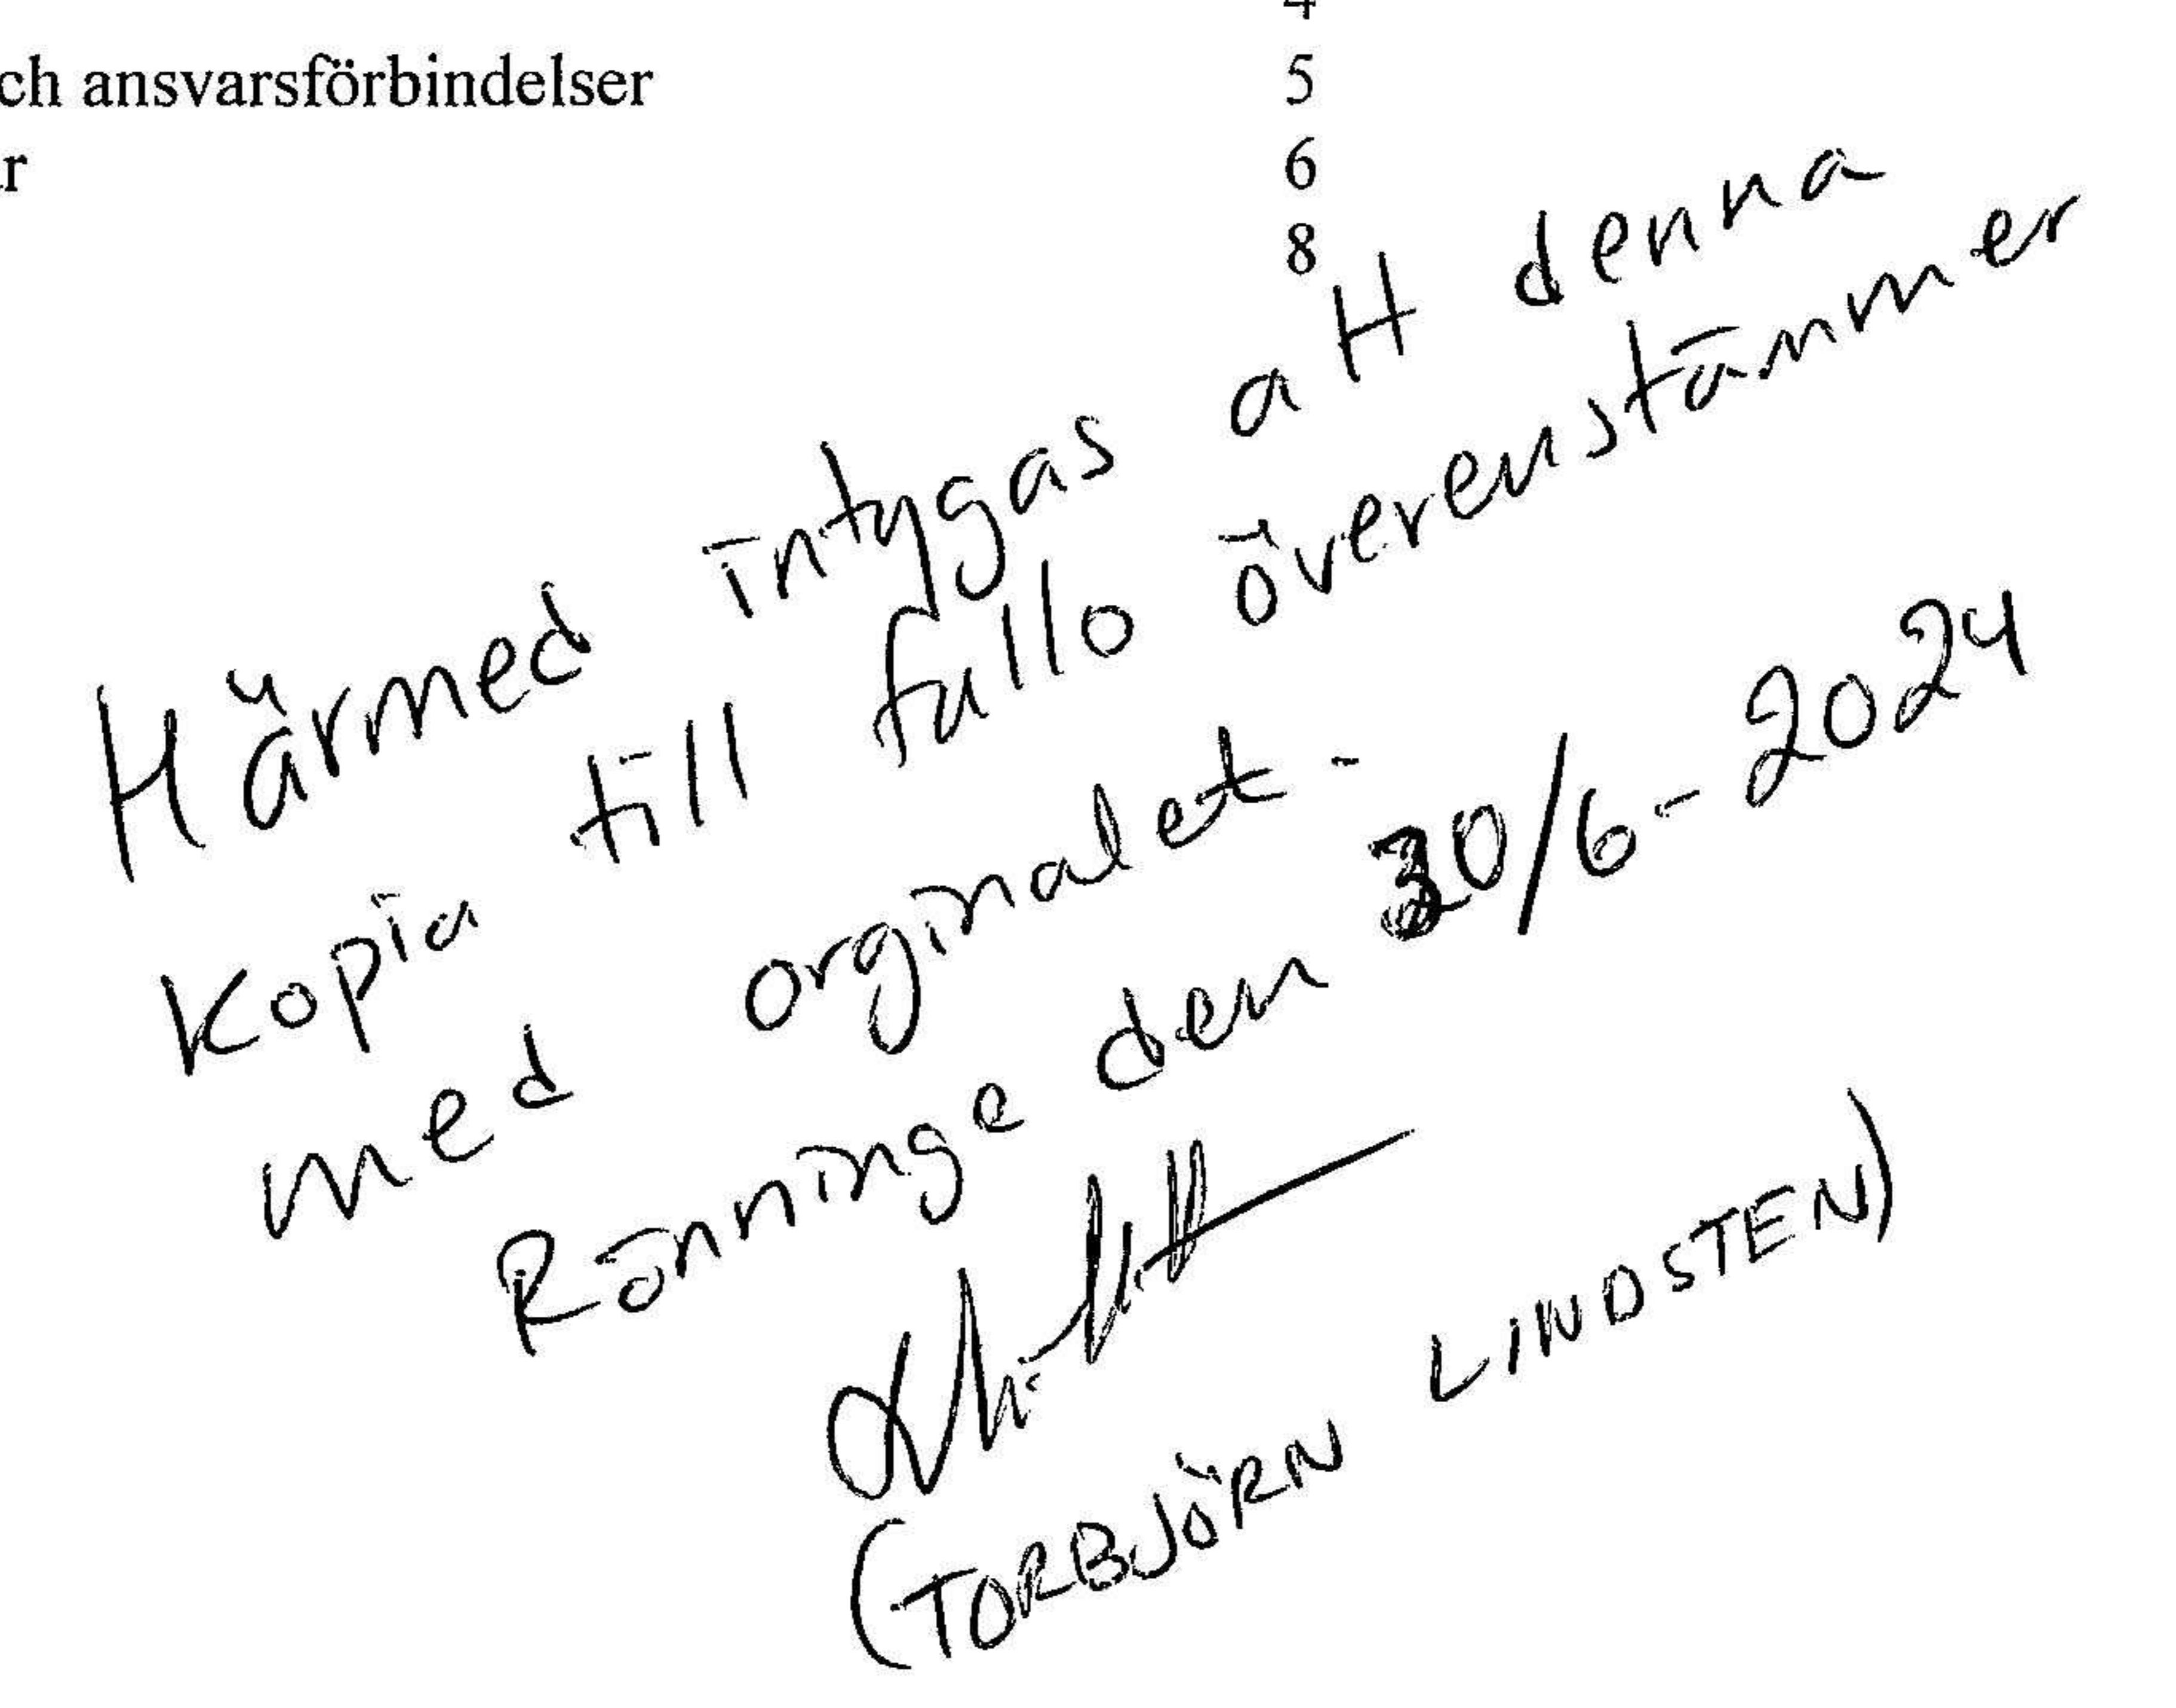 4
ch ansvarsförbindelser 5
r 6
8
Härmed intygas att denna
kopia till fullo överenstämmer
med orginalet.
Rönninge den 30/6-2024
(TORBJÖRN LINDSTEN)